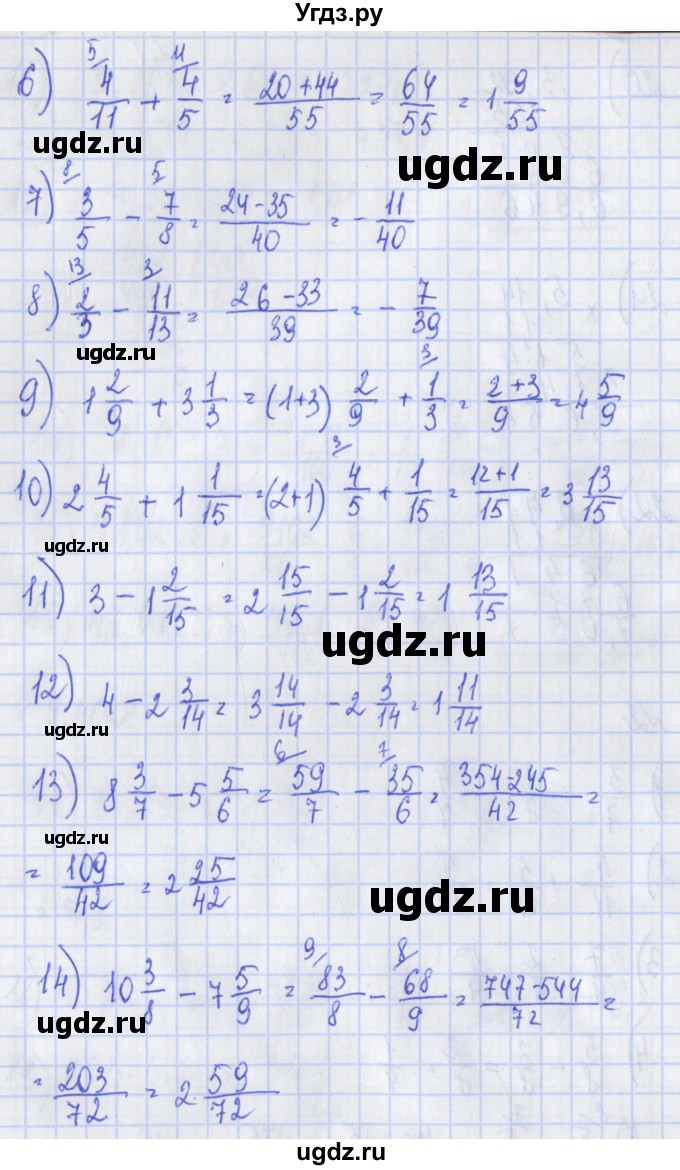 Угдз.ру
6) 5/ 4/11 + 11/ 4/5 = (20+44)/55 = 64/55 = 1 9/55
ugdz.ru
ugdz.ru
7) 8/ 3/5 - 5/ 7/8 = (24-35)/40 = - 11/40
ugdz.ru
8) 13/ 2/3 - 3/ 11/13 = (26-33)/39 = - 7/39
ugdz.ru
ugdz.ru
9) 1 2/9 + 3 1/3 = (1+3) 2/9 + 3/ 1/3 = (2+3)/9 = 4 5/9
ugdz.ru
10) 2 4/5 + 1 1/15 = (2+1) 3/ 4/5 + 1/15 = (12+1)/15 = 3 13/15
ugdz.ru
11) 3 - 1 2/15 = 2 15/15 - 1 2/15 = 1 13/15
ugdz.ru
12) 4 - 2 3/14 = 3 14/14 - 2 3/14 = 1 11/14
ugdz.ru
13) 8 3/7 - 5 5/6 = 6/ 59/7 - 7/ 35/6 = (354-245)/42 =
ugdz.ru
= 109/42 = 2 25/42
ugdz.ru
14) 10 3/8 - 7 5/9 = 9/ 83/8 - 8/ 68/9 = (747-544)/72 =
ugdz.ru
= 203/72 = 2 59/72
ugdz.ru